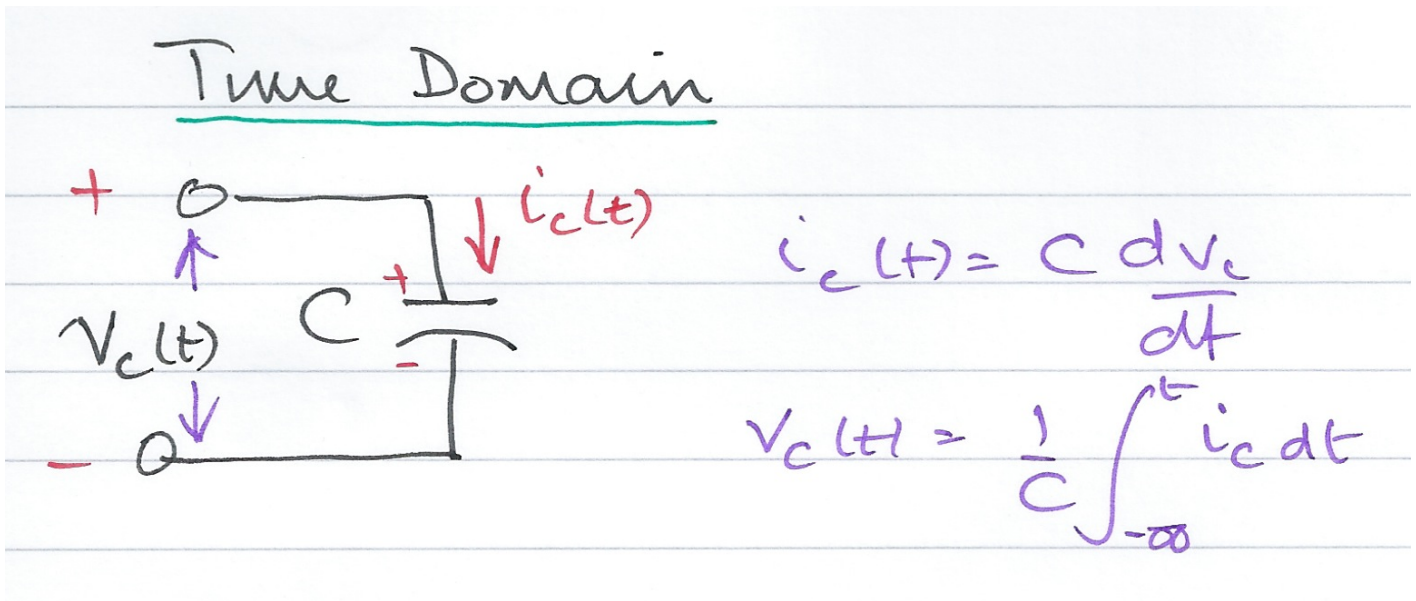 Time Domain
+
i_c(t)
+
C
V_c(t)
-
-
i_c(t) = C dv_c/dt
V_c(t) = 1/C ∫_{-∞}^{t} i_c dt